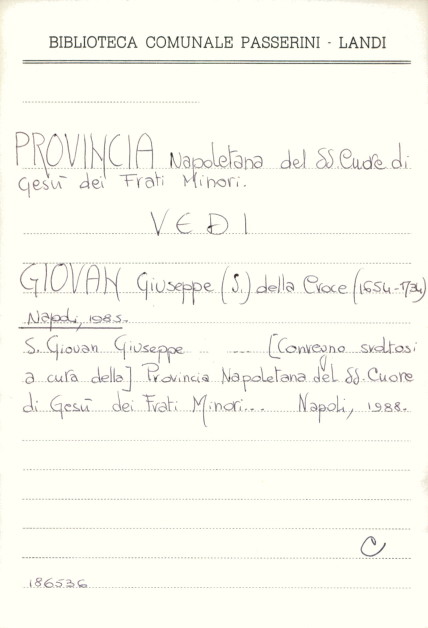 BIBLIOTECA COMUNALE PASSERINI - LANDI
PROVINCIA Napoletana del SS. Cuore di
Gesù dei Frati Minori.
VEDI
GIOVAN Giuseppe (S.) della Croce (1654-1734)
Napoli, 1985.
S. Giovan Giuseppe ... .... [Convegno svoltosi
a cura della] Provincia Napoletana del SS. Cuore
di Gesù dei Frati Minori... Napoli, 1988.
C
186536